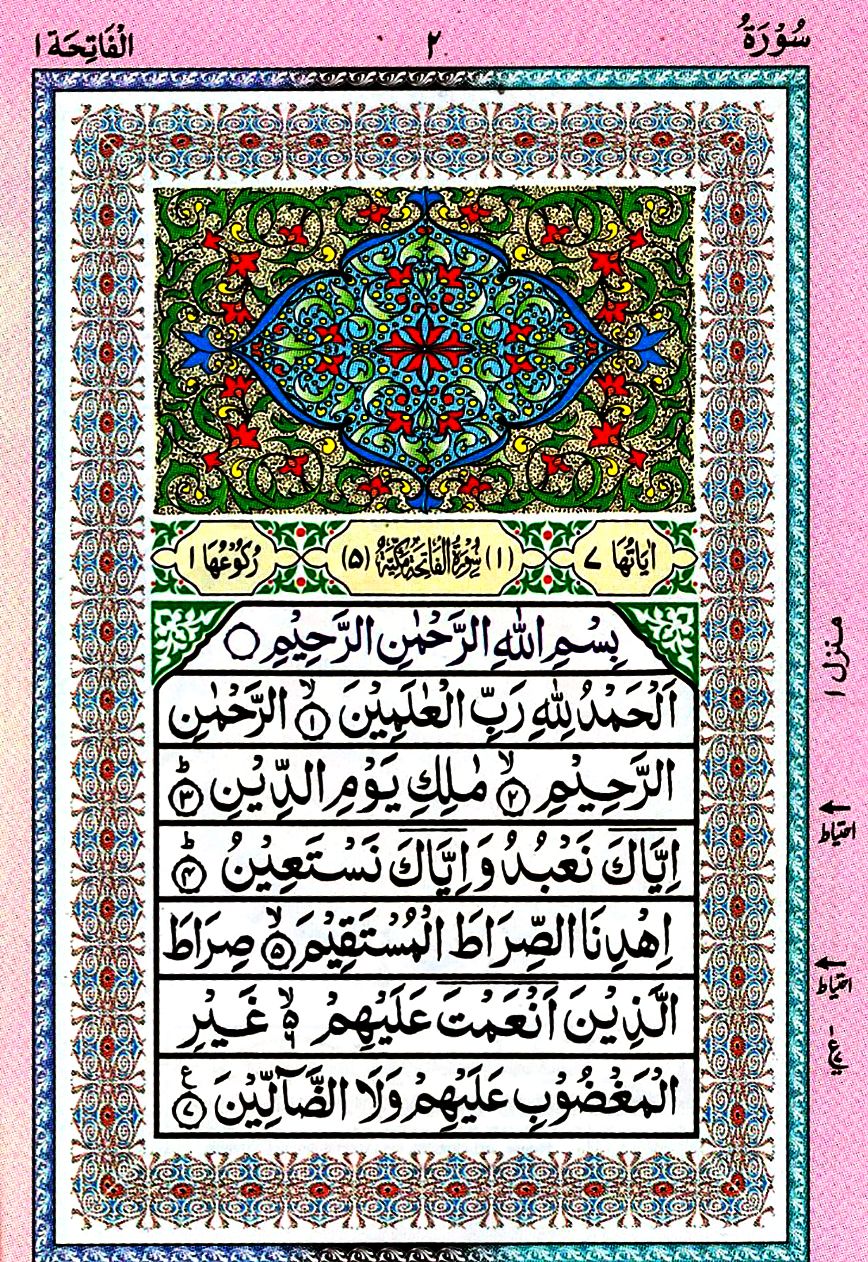 سُوْرَةُ ٢ الْفَاتِحَة ١
اٰيَاتُهَا ٧ (١) سُوْرَةُ الْفَاتِحَةِ مَكِّيَّةٌ (٥) رُكُوْعُهَا ١
بِسْمِ اللّٰهِ الرَّحْمٰنِ الرَّحِيْمِ ۝
اَلْحَمْدُ لِلّٰهِ رَبِّ الْعٰلَمِيْنَ ۙ﴿۱﴾ الرَّحْمٰنِ
الرَّحِيْمِ ۙ﴿۲﴾ مٰلِكِ يَوْمِ الدِّيْنِ ؕ﴿۳﴾
اِيَّاكَ نَعْبُدُ وَ اِيَّاكَ نَسْتَعِيْنُ ؕ﴿۴﴾
اِهْدِنَا الصِّرَاطَ الْمُسْتَقِيْمَ ۙ﴿۵﴾ صِرَاطَ
الَّذِيْنَ اَنْعَمْتَ عَلَيْهِمْ ۙ۶ غَيْرِ
الْمَغْضُوْبِ عَلَيْهِمْ وَلَا الضَّآلِّيْنَ ﴿۷﴾ ع
منزل ١
احتیاط
احتیاط